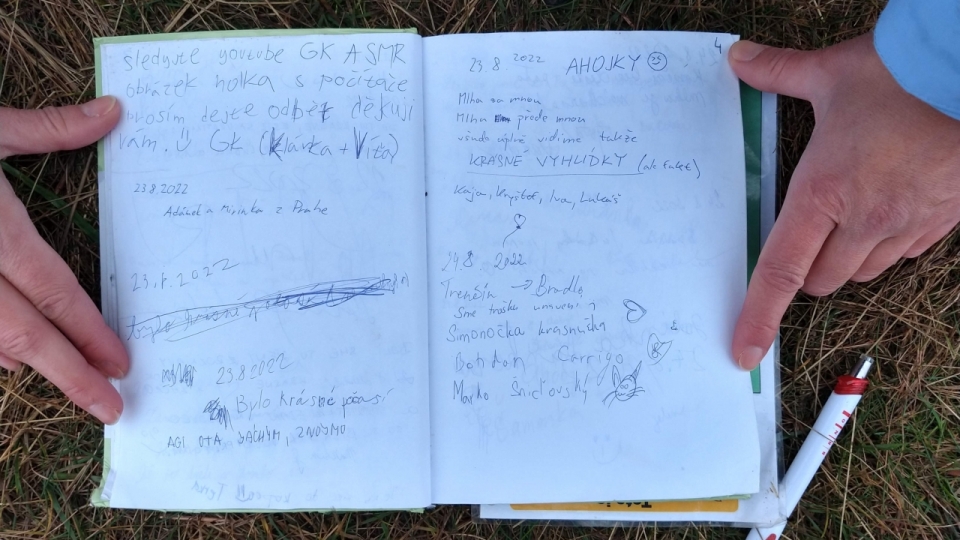 sledujte youtube GK ASMR
obrázek holka s počítače
prosím dejte odběr děkuji
vám. GK (Klárka + Víťa)
23.8.2022
Adámek a Mirinka z Prahe
23.8.2022
23.8.2022
Bylo krásné počasí
AGI OTA JÁCHYM, ZNOJMO
4
23.8.2022 AHOJKY
Mlha za mnou
Mlha přede mnou
všude úplně vidíme takže
KRÁSNÉ VYHLÍDKY (ale fakt)
Kája, Kryštof, Iva, Lukáš
24.8 2022
Trenčín → Bradlo
Sme trošku unavení
Simonočka krásnučka
Carrigo
Marko